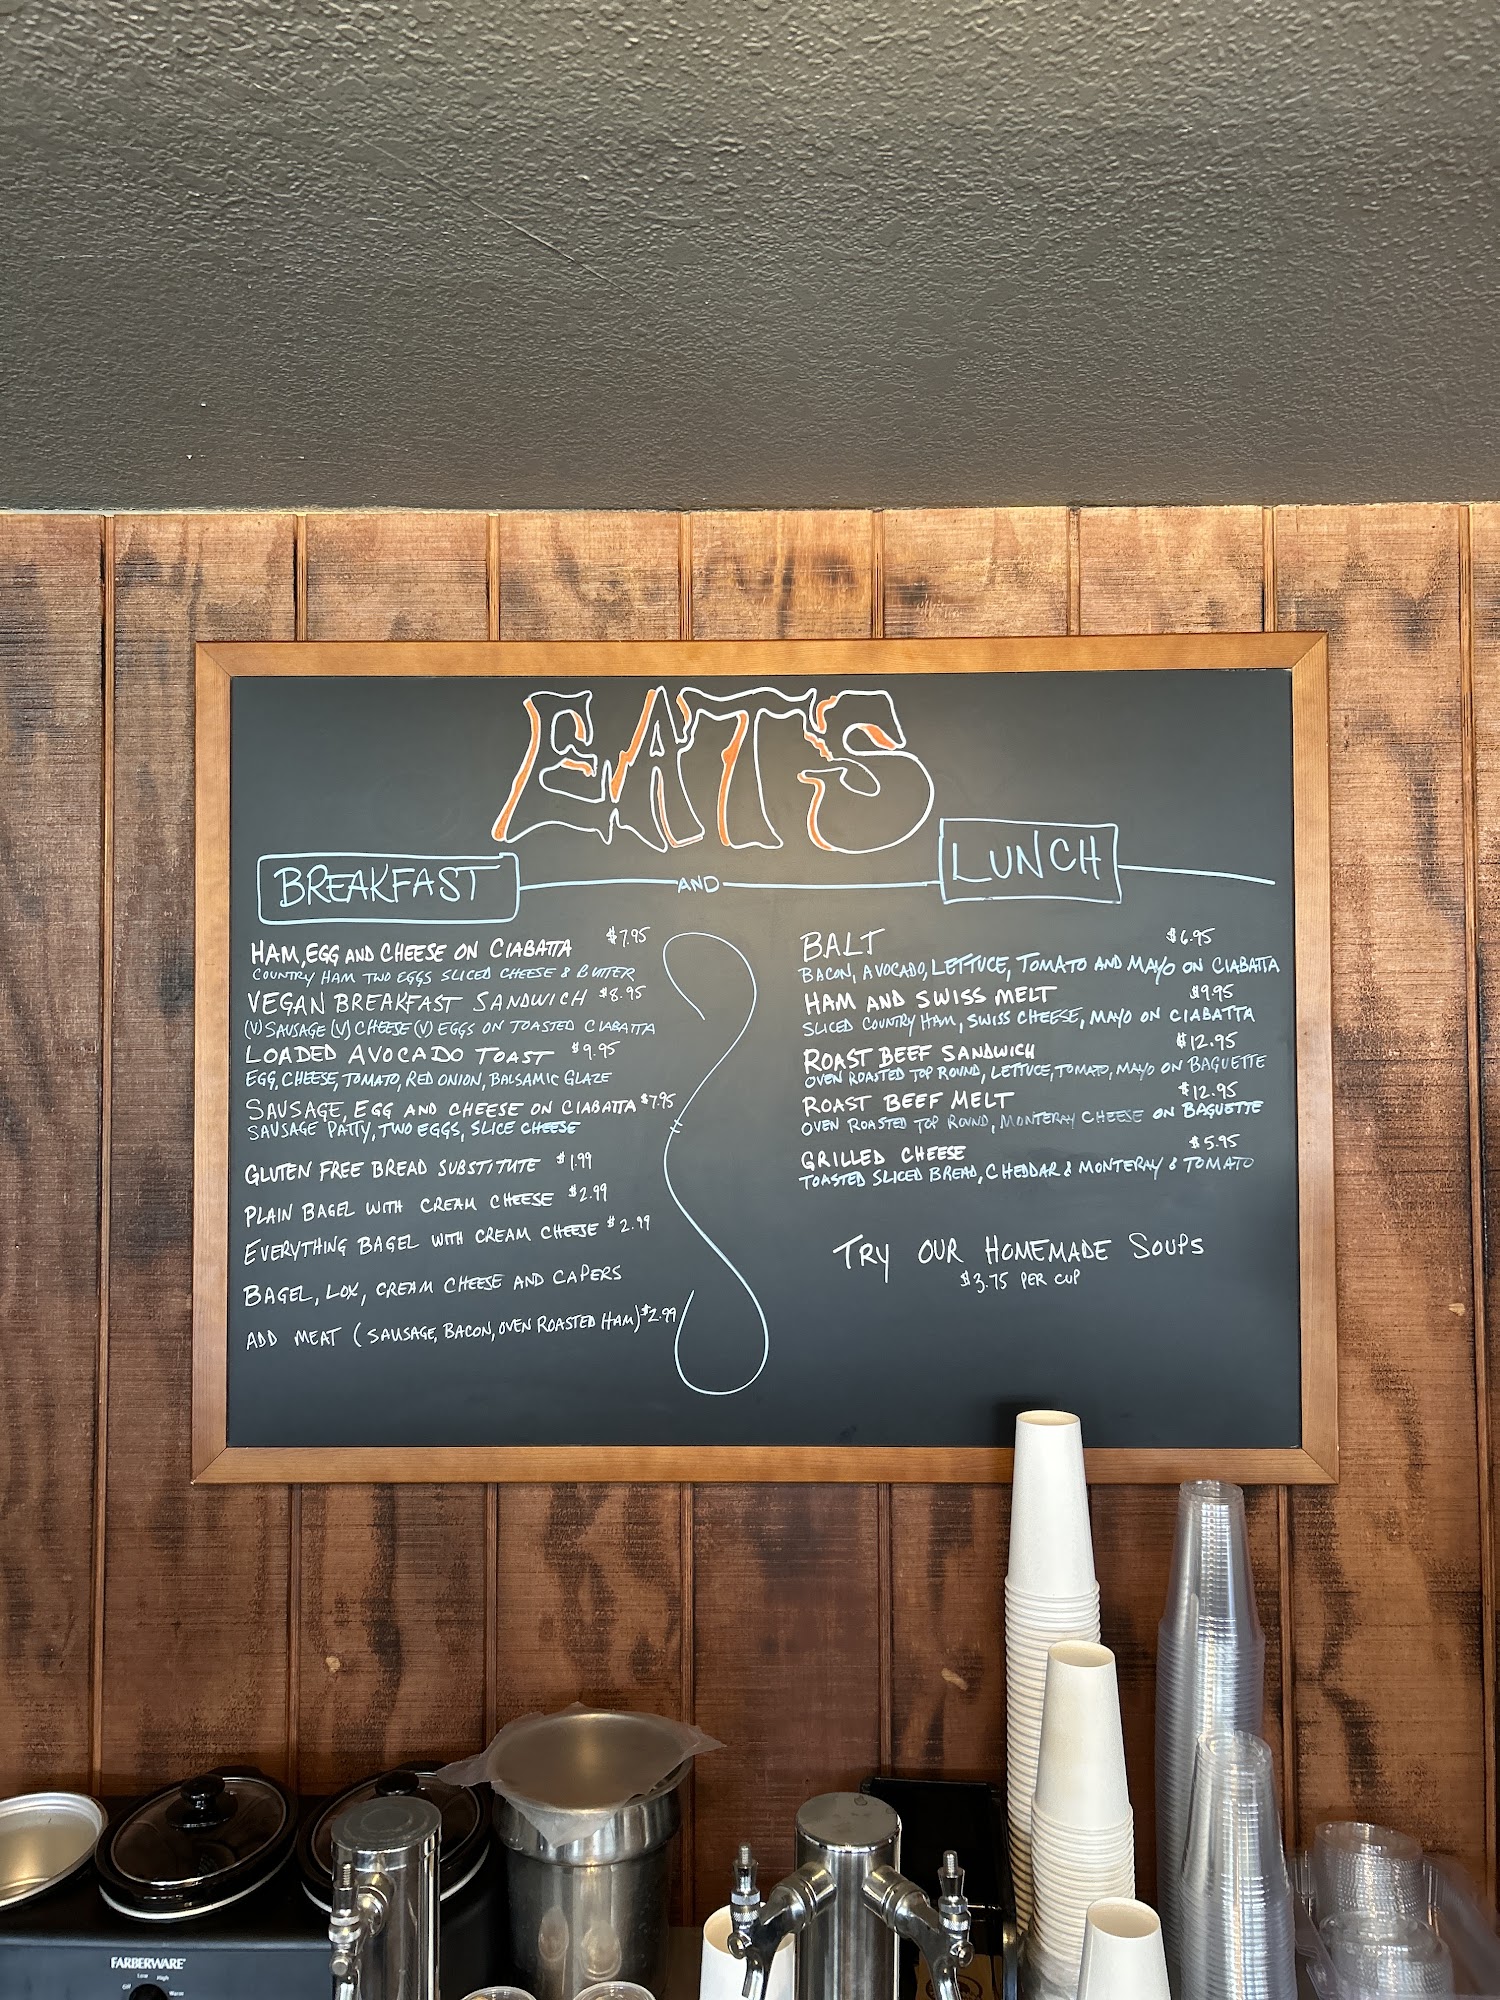 EATS
BREAKFAST AND LUNCH
HAM, EGG AND CHEESE ON CIABATTA $7.95
COUNTRY HAM TWO EGGS SLICED CHEESE & BUTTER
VEGAN BREAKFAST SANDWICH $8.95
(V) SAUSAGE (V) CHEESE (V) EGGS ON TOASTED CIABATTA
LOADED AVOCADO TOAST $9.95
EGG, CHEESE, TOMATO, RED ONION, BALSAMIC GLAZE
SAUSAGE, EGG AND CHEESE ON CIABATTA $7.95
SAUSAGE PATTY, TWO EGGS, SLICE CHEESE
GLUTEN FREE BREAD SUBSTITUTE $1.99
PLAIN BAGEL WITH CREAM CHEESE $2.99
EVERYTHING BAGEL WITH CREAM CHEESE $2.99
BAGEL, LOX, CREAM CHEESE AND CAPERS
ADD MEAT (SAUSAGE, BACON, OVEN ROASTED HAM) $2.99
BALT $6.95
BACON, AVOCADO, LETTUCE, TOMATO AND MAYO ON CIABATTA
HAM AND SWISS MELT $9.95
SLICED COUNTRY HAM, SWISS CHEESE, MAYO ON CIABATTA
ROAST BEEF SANDWICH $12.95
OVEN ROASTED TOP ROUND, LETTUCE, TOMATO, MAYO ON BAGUETTE
ROAST BEEF MELT $12.95
OVEN ROASTED TOP ROUND, MONTERAY CHEESE ON BAGUETTE
GRILLED CHEESE $5.95
TOASTED SLICED BREAD, CHEDDAR & MONTERAY & TOMATO
TRY OUR HOMEMADE SOUPS
$3.75 PER CUP
FARBERWARE
Low High
Off Warm